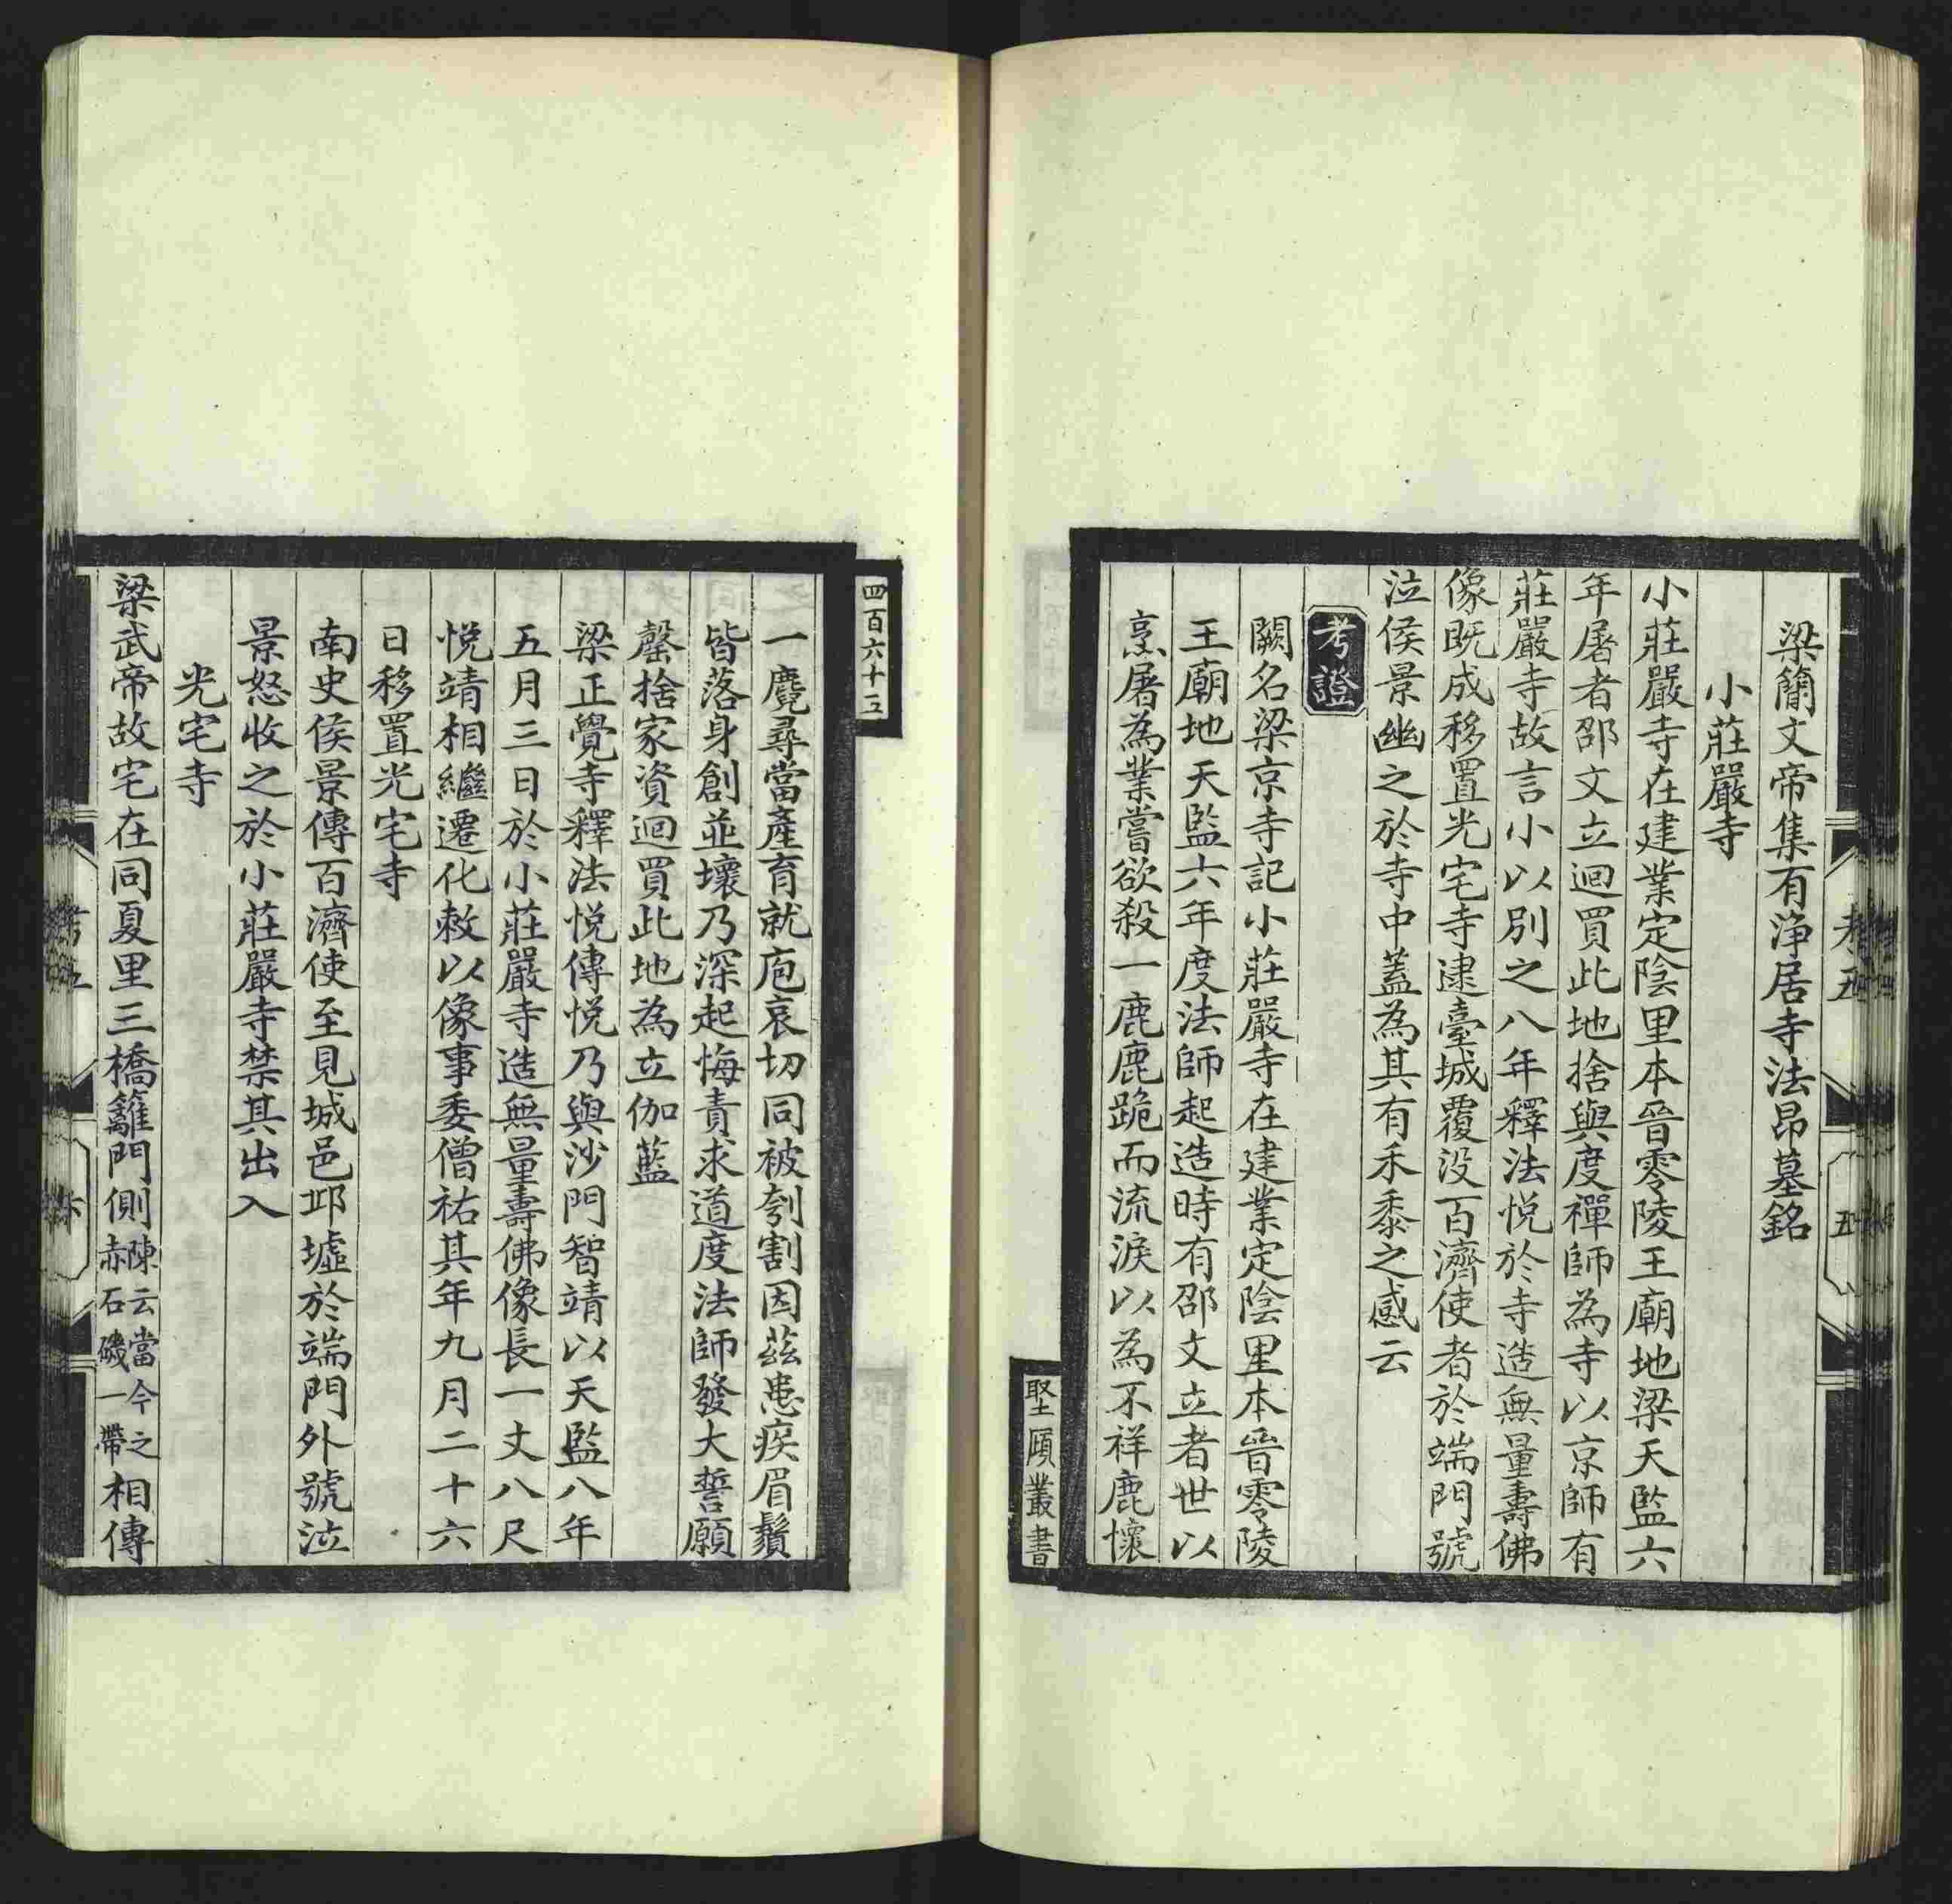 梁簡文帝集有淨居寺法昂墓銘
小莊嚴寺
小莊嚴寺在建業定陰里本晉零陵王廟地梁天監六
年屠者邵文立迴買此地捨與度禪師為寺以京師有
莊嚴寺故言小以別之八年釋法悅於寺造無量壽佛
像既成移置光宅寺逮臺城覆没百濟使者於端門號
泣侯景幽之於寺中蓋為其有禾黍之感云
考證
闕名梁京寺記小莊嚴寺在建業定陰里本晉零陵
王廟地天監六年度法師起造時有邵文立者世以
烹屠為業嘗欲殺一鹿鹿跪而流淚以為不祥鹿懷
堅頋叢書
四百六十三
一麑尋當產育就庖哀切同被刳割因茲患疾眉鬚
皆落身創並壞乃深起悔責求道度法師發大誓願
罄捨家資迴買此地為立伽藍
梁正覺寺釋法悅傳悅乃與沙門智靖以天監八年
五月三日於小莊嚴寺造無量壽佛像長一丈八尺
悅靖相繼遷化敕以像事委僧祐其年九月二十六
日移置光宅寺
南史侯景傳百濟使至見城邑邱墟於端門外號泣
景怒收之於小莊嚴寺禁其出入
光宅寺
梁武帝故宅在同夏里三橋籬門側陳云當今之赤石磯一帶相傳